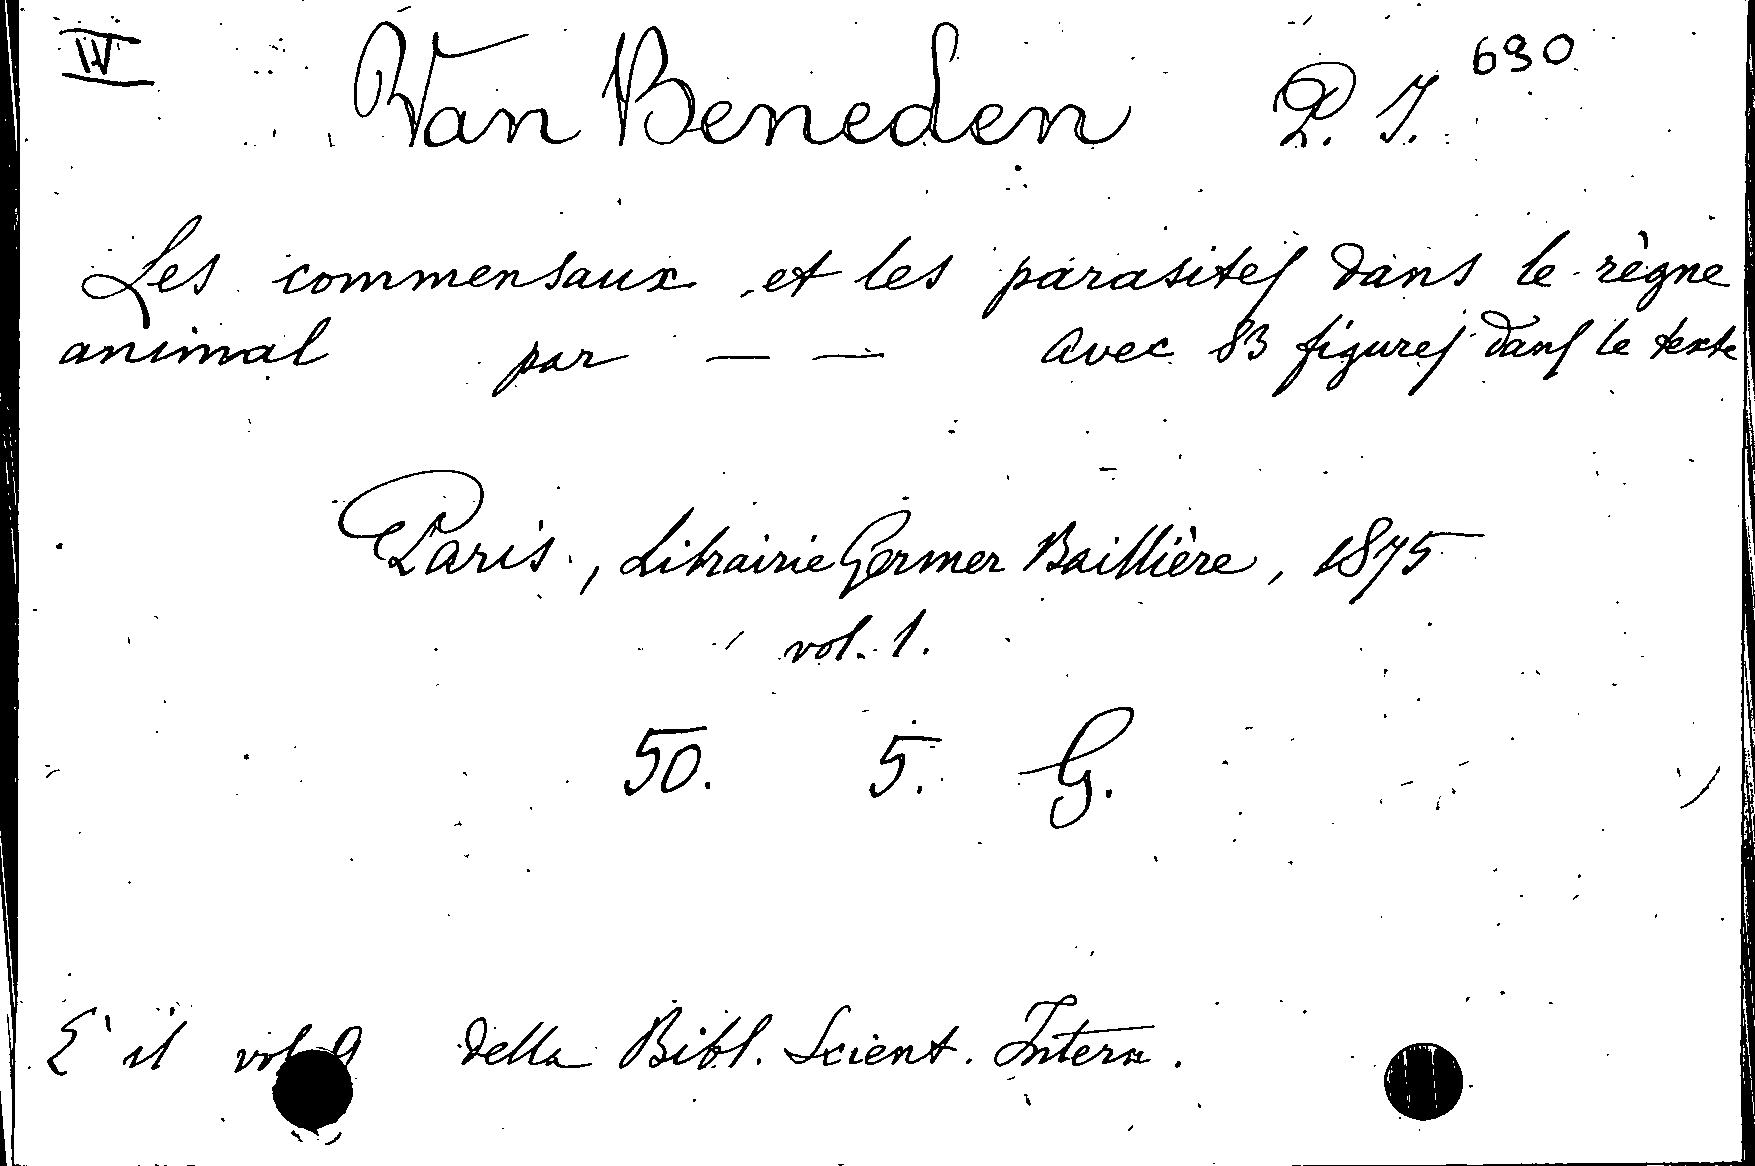 IV Van Beneden P. J. 690
Les commensaux et les parasites dans le règne
animal par — — avec 83 figures dans le texte
Paris, Librairie Germer Baillière, 1875
vol. 1.
50. 5. G.
E' il vol 9 della Bibl. Scient. Intern.